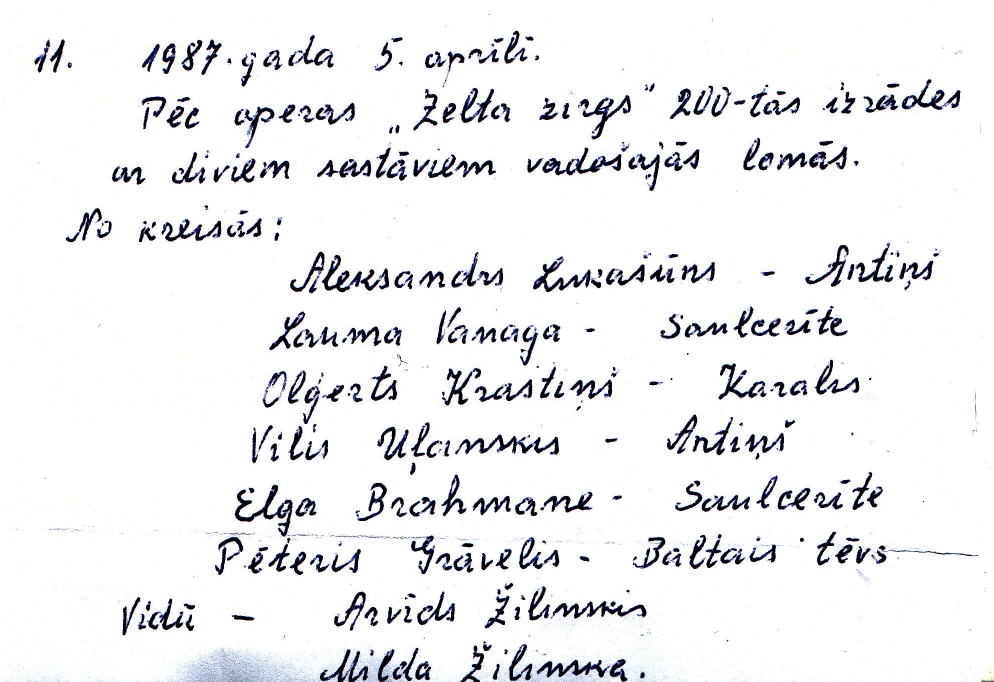 11. 1987. gada 5. aprīlī.
Pēc operas „Zelta zirgs" 200-tās izrādes
ar diviem sastāviem vadošajās lomās.
No kreisās:
Aleksandrs Lukašūns - Antiņš
Lauma Vanaga - Saulcerīte
Oļģerts Krastiņš - Karalis
Vilis Uļanskis - Antiņš
Elga Brahmane - Saulcerīte
Pēteris Grāvelis - Baltais tēvs
Vidū - Arvīds Žilinskis
Milda Žilinska.